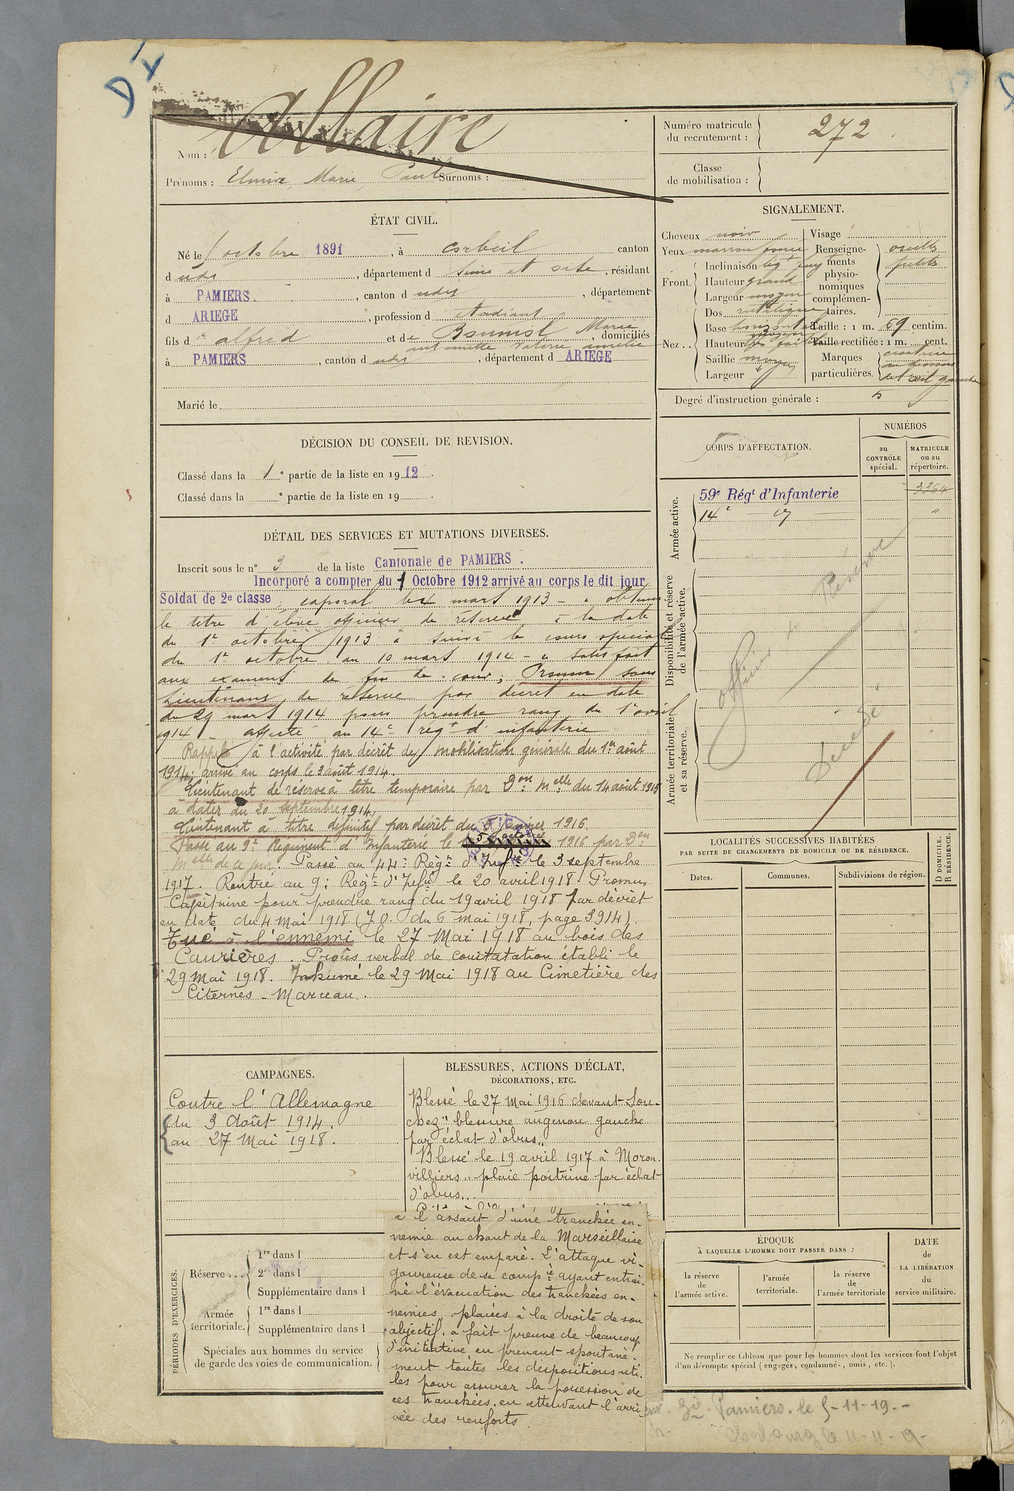 Allaire
Nom :
Prénoms : Elmire Marie Paul Surnoms :
Numéro matricule
du recrutement :
272
Classe
de mobilisation :
ÉTAT CIVIL.
Né le 1 octobre 1891, à Corbeil canton
d udit, département d Seine et Oise, résidant
à PAMIERS., canton d udit, département
d ARIEGE, profession d étudiant
fils d Alfred et de Marie
antoinette valérie amélie domiciliés
à PAMIERS, canton d udit, département d ARIEGE
Marié le
SIGNALEMENT.
Cheveux noir Visage
Yeux marron foncé
Front. Inclinaison
Hauteur grand
Largeur moyen
Nez.. Dos rectiligne
Base horizontal
Hauteur
Saillie moyen
Largeur
Renseigne-
ments
physio-
nomiques
complémen-
taires.
oreilles
petites
Taille : 1 m. 69 centim.
Taille rectifiée : 1 m. cent.
Marques
particulières.
cicatrice
au dessous
de l'œil gauche
Degré d'instruction générale : 5
DÉCISION DU CONSEIL DE REVISION.
Classé dans la 1e partie de la liste en 1912.
Classé dans la e partie de la liste en 19
CORPS D'AFFECTATION.
NUMÉROS
au
CONTRÔLE
spécial.
MATRICULE
ou au
répertoire.
Armée active.
59e Régt d'Infanterie 3364
14e d° "
Disponibilité et réserve
de l'armée active.
officier de Réserve
Armée territoriale
et sa réserve.
Décédé
DÉTAIL DES SERVICES ET MUTATIONS DIVERSES.
Inscrit sous le n° 3 de la liste Cantonale de PAMIERS.
Incorporé a compter du 1 Octobre 1912 arrivé au corps le dit jour
Soldat de 2e classe, caporal le mars 1913 - a obtenu
le titre d'élève officier de réserve à la date
du 1er octobre 1913 a suivi le cours spécial
du 1er octobre au 10 mars 1914 - a satisfait
aux examens de fin de cours, Promu sous
Lieutenant de réserve par décret en date
du 29 mars 1914 pour prendre rang du 1er avril
1914 - affecté au 14e régt d'infanterie
Rappelé à l'activité par décret de mobilisation générale du 1er août
1914; arrivé au corps le 3 août 1914
Lieutenant de réserve à titre temporaire par Don Melle du 14 août 1915
à dater du 20 septembre 1914.
Lieutenant à titre définitif par décret du janvier 1916.
Passé au 9e Régiment d'Infanterie le 1916 par Don
Melle de ce jour. Passé au 44e Régt d'Infie le 3 septembre
1917. Rentré au 9e Régt d'Infie le 20 avril 1918. Promu
Capitaine pour prendre rang du 19 avril 1918 par décret
en date du 4 Mai 1918 (J.O. du 6 mai 1918, page 3914).
Tué à l'ennemi le 27 Mai 1918 au bois des
Caurières. Procès verbal de constatation établi le
29 Mai 1918. Inhumé le 29 Mai 1918 au Cimetière des
Citernes - Marceau.
LOCALITÉS SUCCESSIVES HABITÉES
PAR SUITE DE CHANGEMENTS DE DOMICILE OU DE RÉSIDENCE.
Dates.
Communes.
Subdivisions de région.
D DOMICILE.
R RÉSIDENCE.
CAMPAGNES.
Contre l'Allemagne
du 3 Août 1914.
au 27 Mai 1918.
BLESSURES, ACTIONS D'ÉCLAT,
DÉCORATIONS, ETC.
Blessé le 27 Mai 1916 devant Sou-
chez "blessure au genou gauche
par éclat d'obus"
Blessé le 19 avril 1917 à Moron-
villiers "plaie poitrine par éclat
d'obus"
à l'assaut d'une tranchée en-
nemie au chant de la Marseillaise
et s'en est emparé. L'attaque vi-
goureuse de sa compie ayant entraî-
né l'évacuation des tranchées en-
nemies, placées à la droite de son
objectif, a fait preuve de beaucoup
d'initiative en prenant spontané-
ment toutes les dispositions uti-
les pour assurer la possession de
ces tranchées, en attendant l'arri-
vée des renforts.
PÉRIODES D'EXERCICES.
Réserve...
1re dans l
2e dans l
Supplémentaire dans l
Armée
territoriale.
1re dans l
Supplémentaire dans l
Spéciales aux hommes du service
de garde des voies de communication.
ÉPOQUE
À LAQUELLE L'HOMME DOIT PASSER DANS :
la réserve
de
l'armée active.
l'armée
territoriale.
la réserve
de
l'armée territoriale
DATE
de
LA LIBÉRATION
du
service militaire.
Ne remplir ce tableau que pour les hommes dont les services font l'objet
d'un décompte spécial (engagés, condamnés, omis, etc.).
Pamiers. le 5-11-19